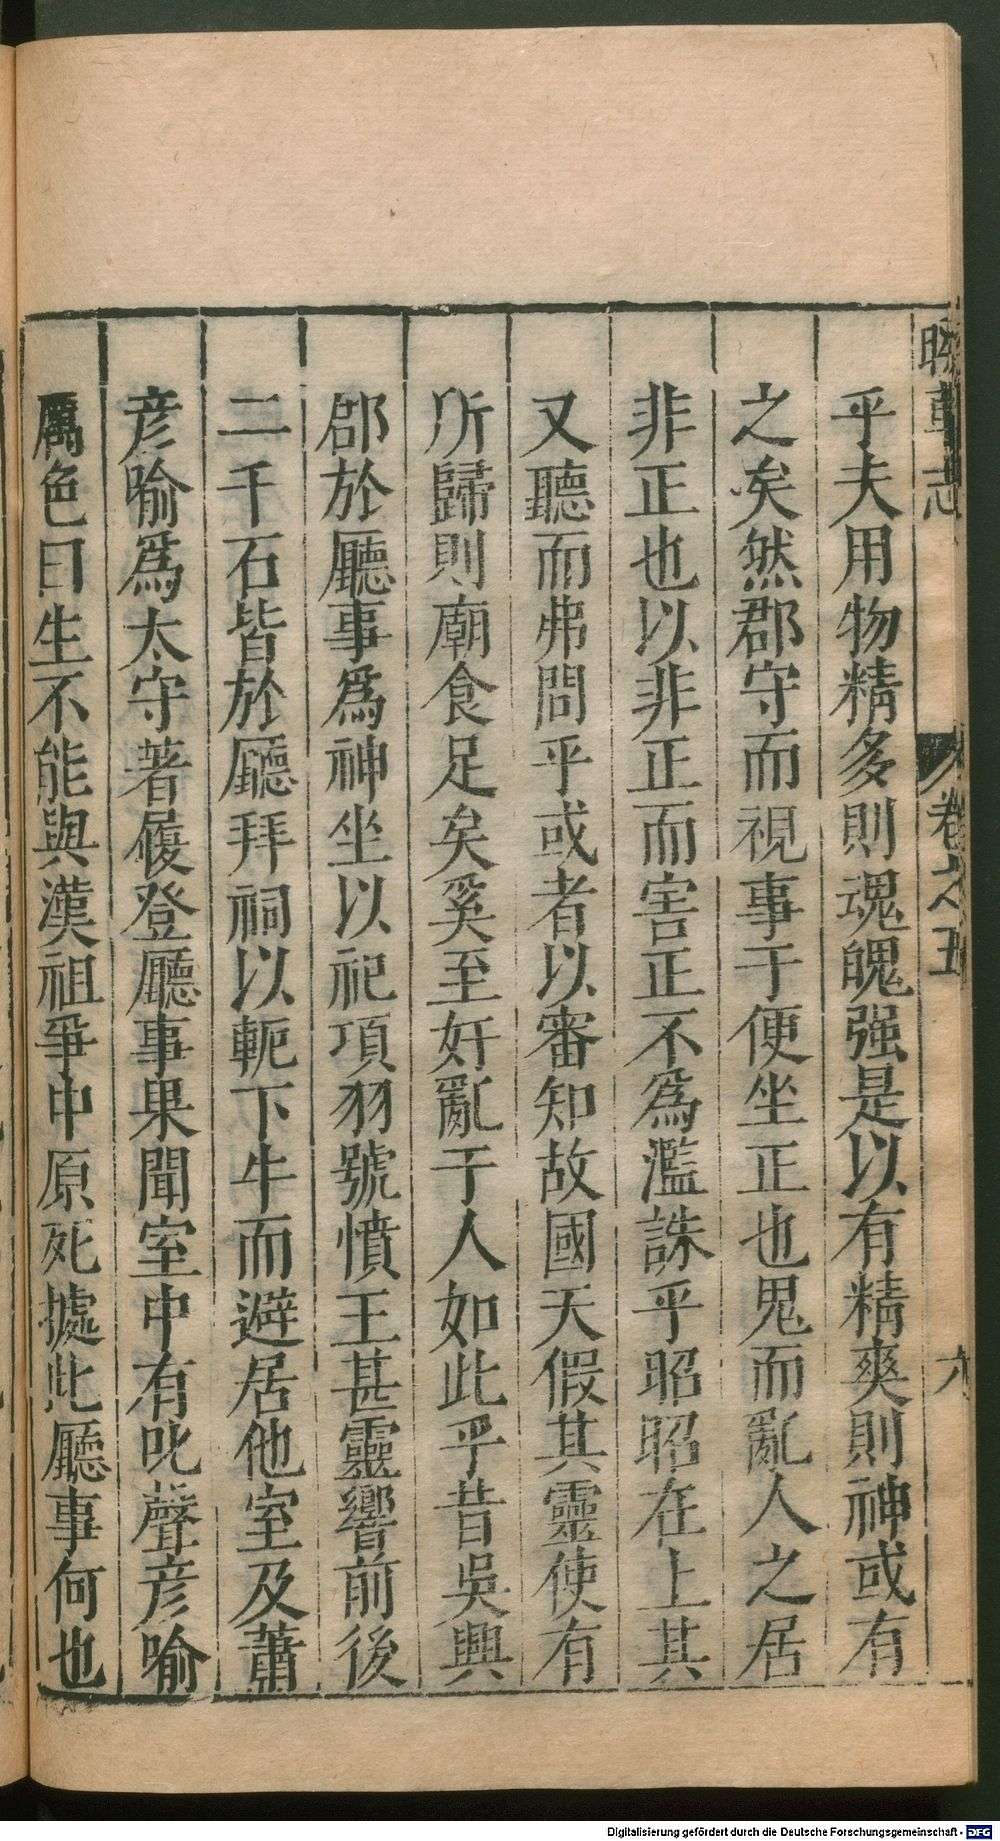 乎夫用物精多則魂魄强是以有精爽則神或有
之矣然郡守而視事于便坐正也鬼而亂人之居
非正也以非正而害正不為濫誅乎昭昭在上其
又聽而弗問乎或者以審知故國天假其靈使有
所歸則廟食足矣奚至奸亂于人如此乎昔吳興
郡於廳事爲神坐以祀項羽號憤王甚靈響前後
二千石皆於廳拜祠以軛下牛而避居他室及蕭
彦喻爲太守著履登廳事果聞室中有叱聲彦喻
厲色曰生不能與漢祖爭中原死據此廳事何也
卷之五
六
Digitalisierung gefördert durch die Deutsche Forschungsgemeinschaft - DFG